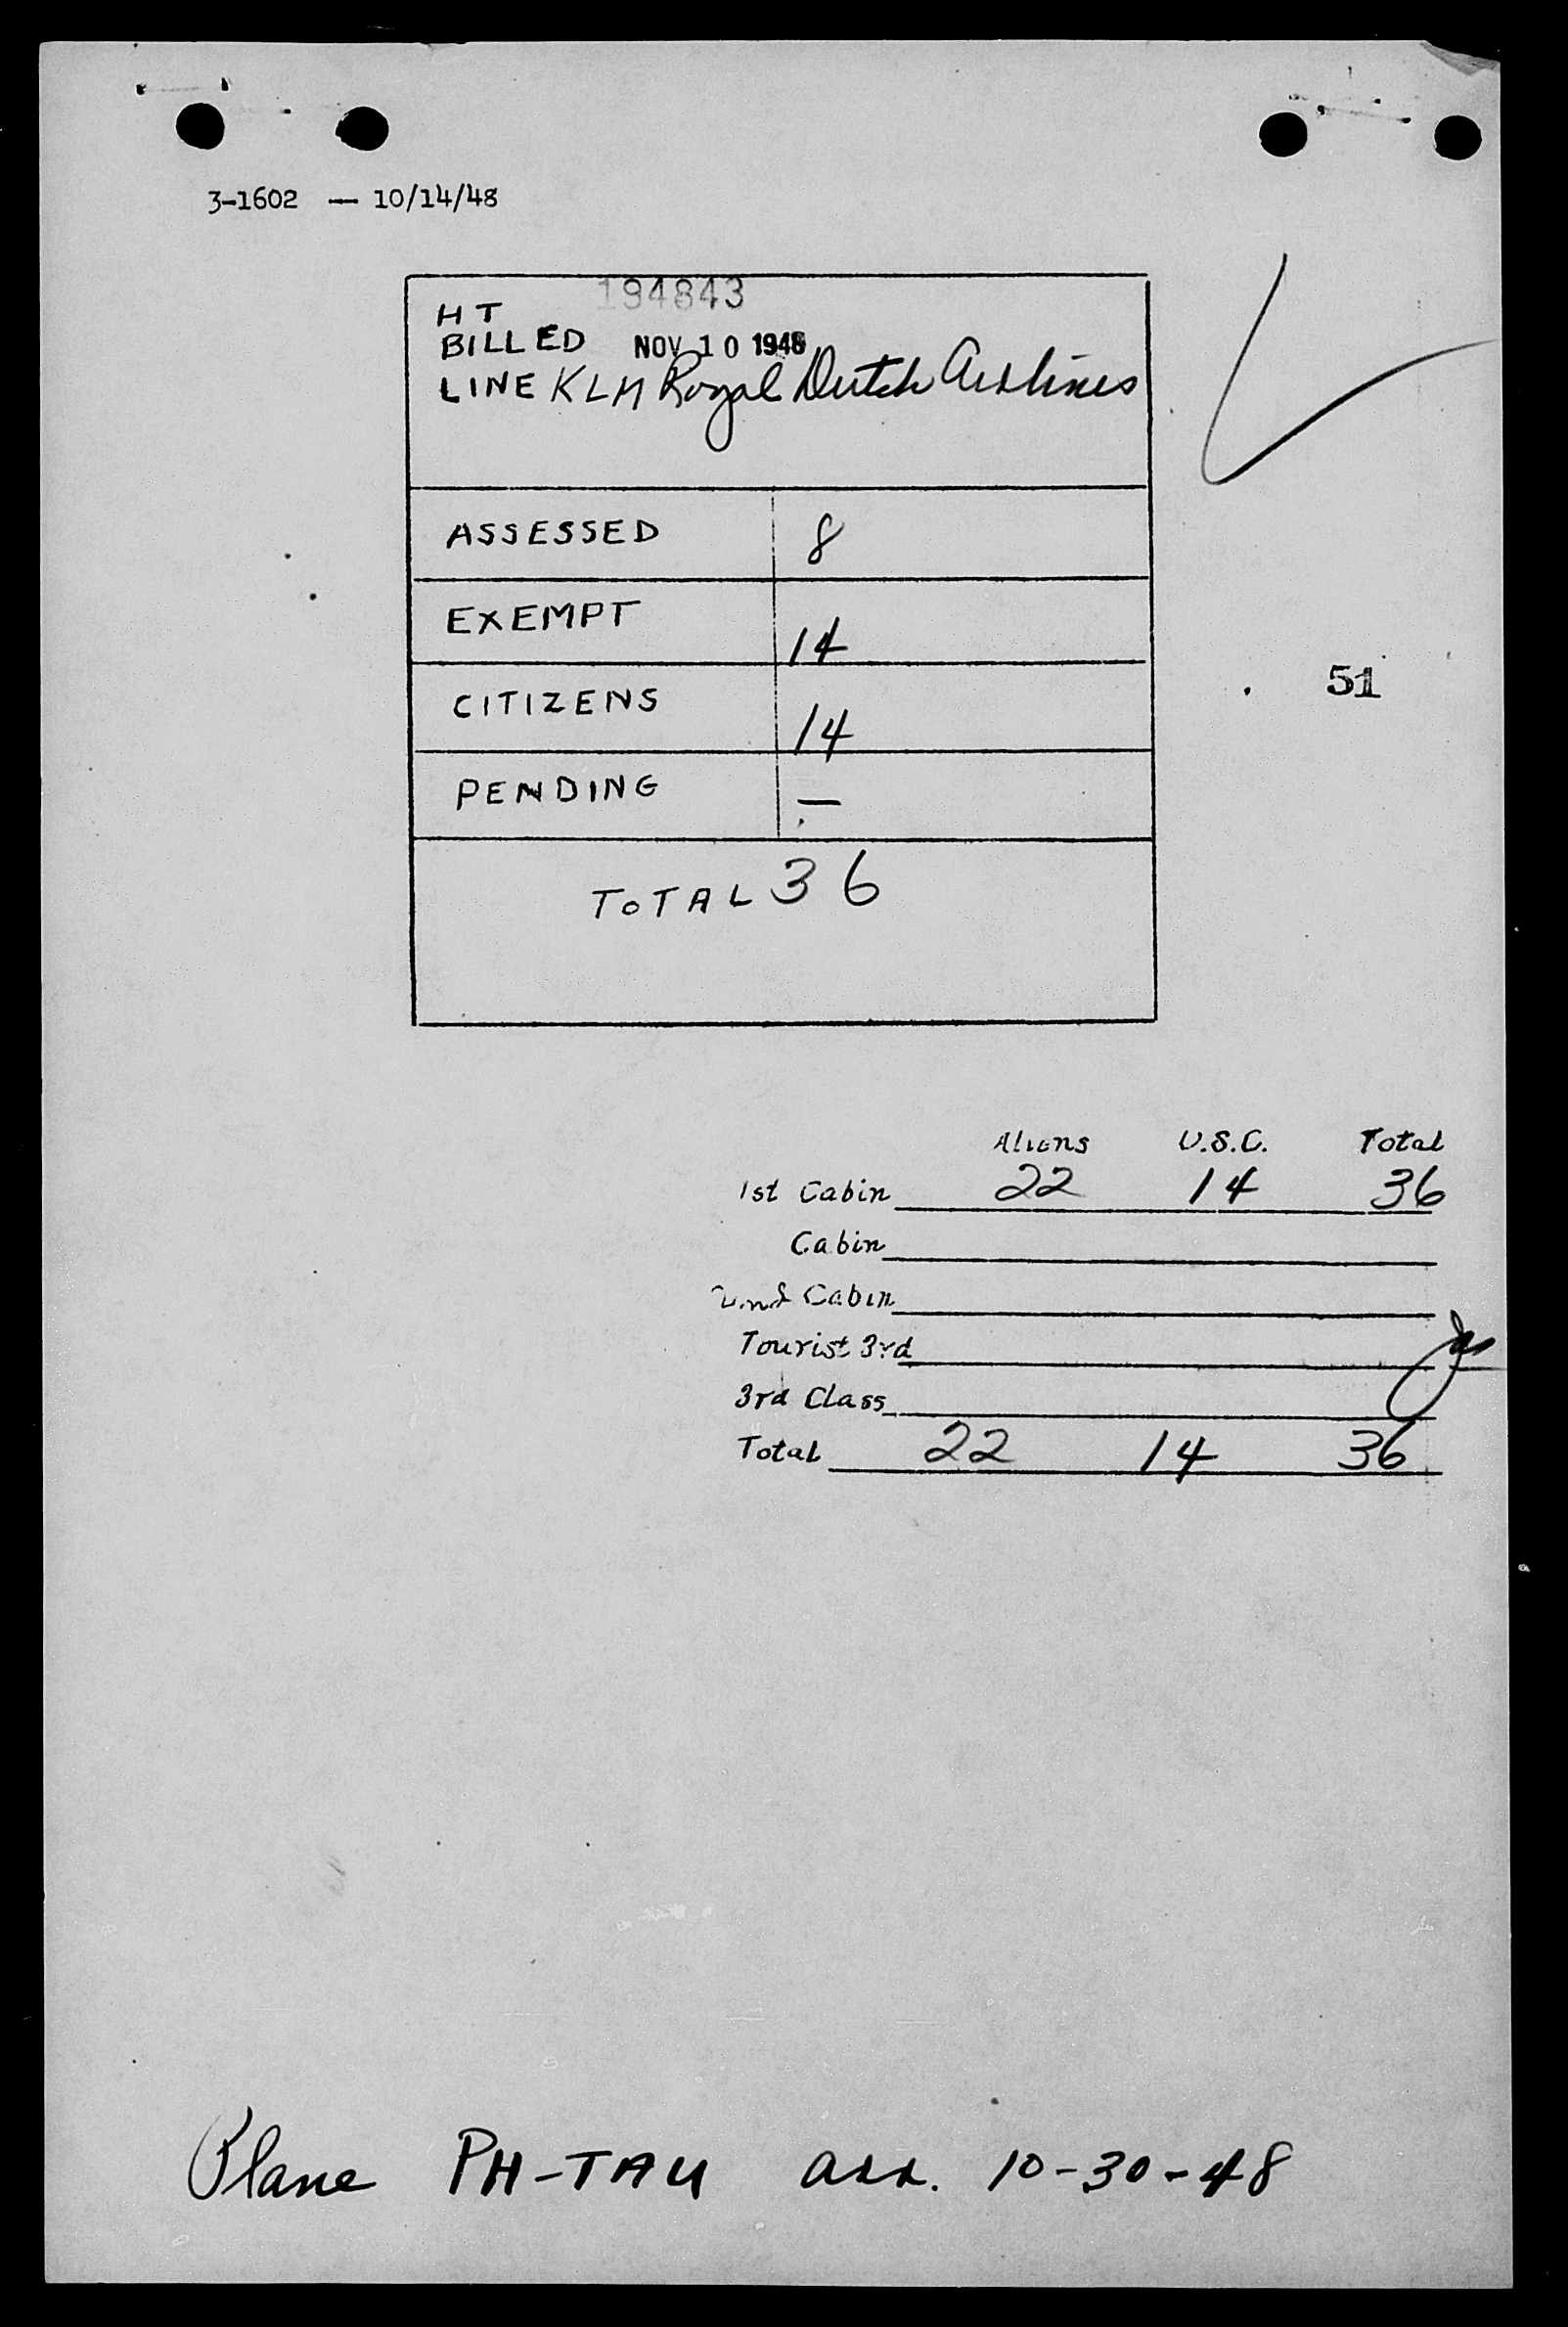 3-1602 — 10/14/48
194843
HT
BILLED NOV 10 1948
LINE KLM Royal Dutch Airlines
ASSESSED 8
EXEMPT 14
51
CITIZENS 14
PENDING —
TOTAL 36
Aliens U.S.C. Total
1st Cabin 22 14 36
Cabin
2nd Cabin
Tourist 3rd
3rd Class
Total 22 14 36
Plane PH-TAU arr. 10-30-48